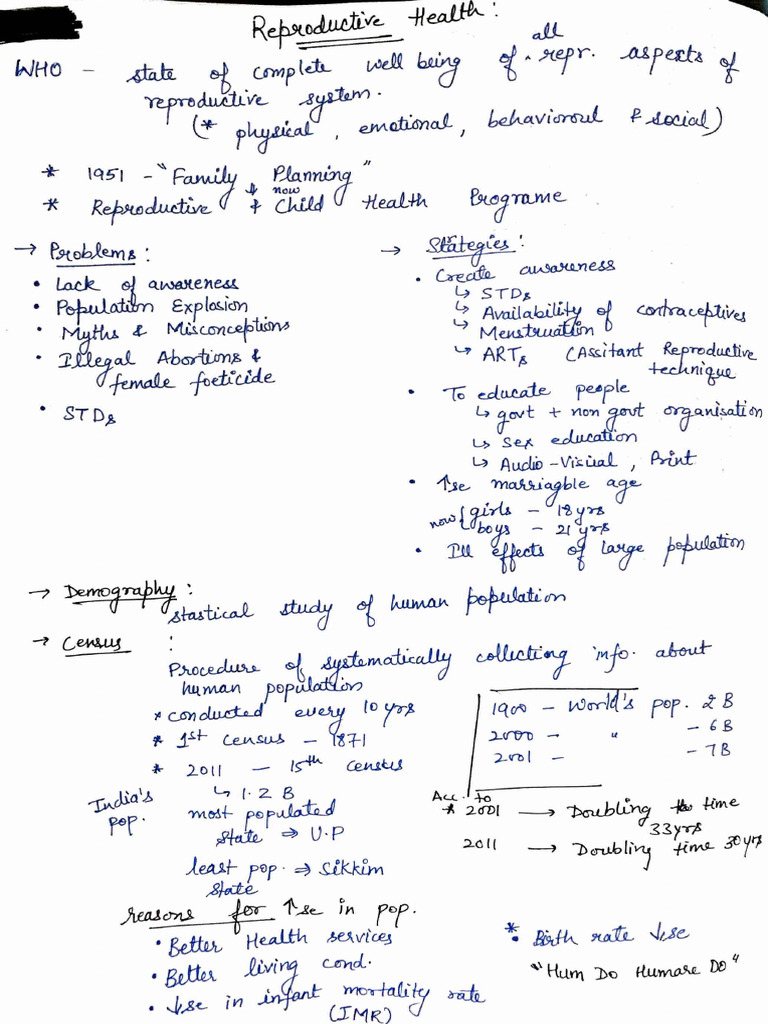 Reproductive Health :
WHO - state of complete well being of all repr. aspects of
reproductive system.
(* physical, emotional, behavioroul & social)
* 1951 - "Family Planning"
↓ now
* Reproductive & Child Health Programe
→ Problems :
• Lack of awareness
• Population Explosion
• Myths & Misconceptions
• Illegal Abortions &
female foeticide
• STDs
→ Strategies :
• Create awareness
↳ STDs
↳ Availability of contraceptives
↳ Menstruation
↳ ARTs (Assitant Reproductive
technique
• To educate people
↳ govt + non govt organisation
↳ Sex education
↳ Audio-Visual, Print
• ↑se marriagble age
now { girls - 18 yrs
boys - 21 yrs
• Ill effects of large population
→ Demography :
stastical study of human population
→ Census :
Procedure of systematically collecting info. about
human population
* conducted every 10 yrs
* 1st census - 1871
* 2011 - 15th census
↳ 1.2 B
India's
pop.
most populated
state ⇒ U.P
least pop. ⇒ Sikkim
state
1900 - World's pop. 2 B
2000 - " - 6B
2001 - - 7B
Acc. to
* 2001 → Doubling time
33yrs
2011 → Doubling time 30 yrs
reasons for ↑se in pop.
• Better Health services
• Better living cond.
• ↓se in infant mortality rate
(IMR)
* Birth rate ↓se
"Hum Do Humare Do"